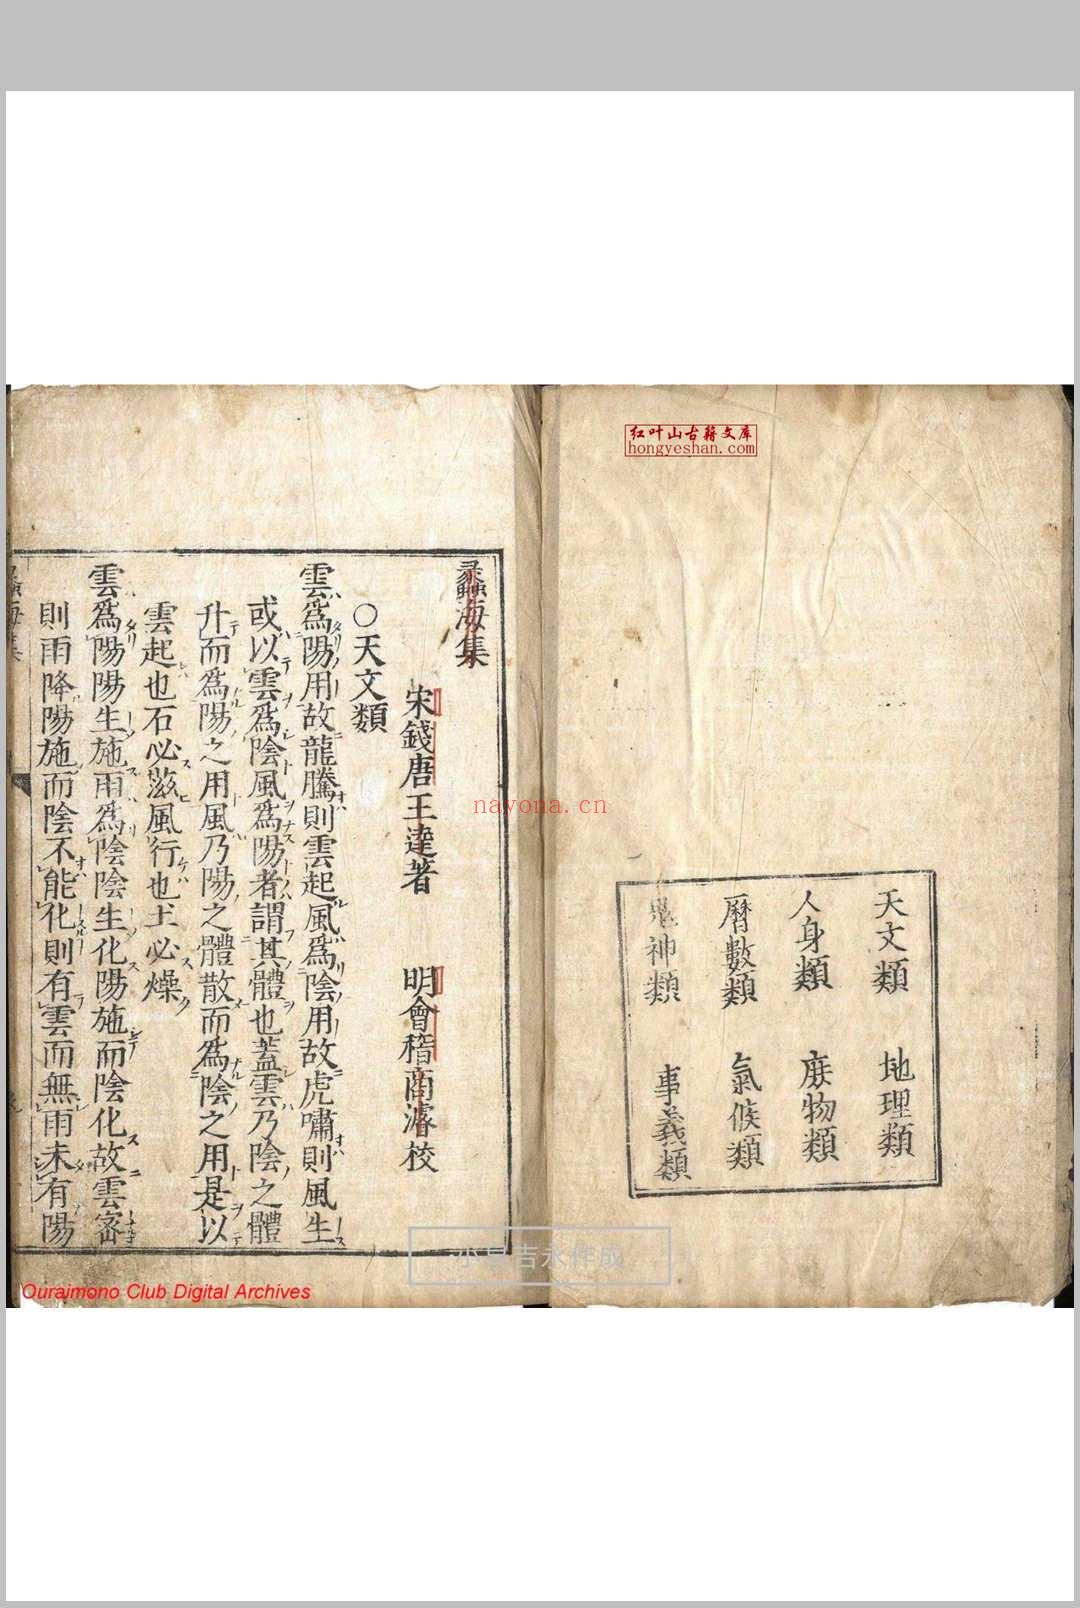 红叶山古籍文库
hongyeshan.com
天文類 地理類
人身類 庶物類
曆數類 氣候類
鬼神類 事義類
蠡海集
宋錢唐王逵著 明會稽商濬校
〇天文類
雲爲陽用故龍騰則雲起風爲陰用故虎嘯則風生
或以雲爲陰風爲陽者謂其體也蓋雲乃陰之體
升而爲陽之用風乃陽之體散而爲陰之用是以
雲起也石必滋風行也土必燥
雲爲陽陽生施雨爲陰陰生化陽施而陰化故雲密
則雨降陽施而陰不能化則有雲而無雨未有陽
nayona.cn
Ouraimono Club Digital Archives